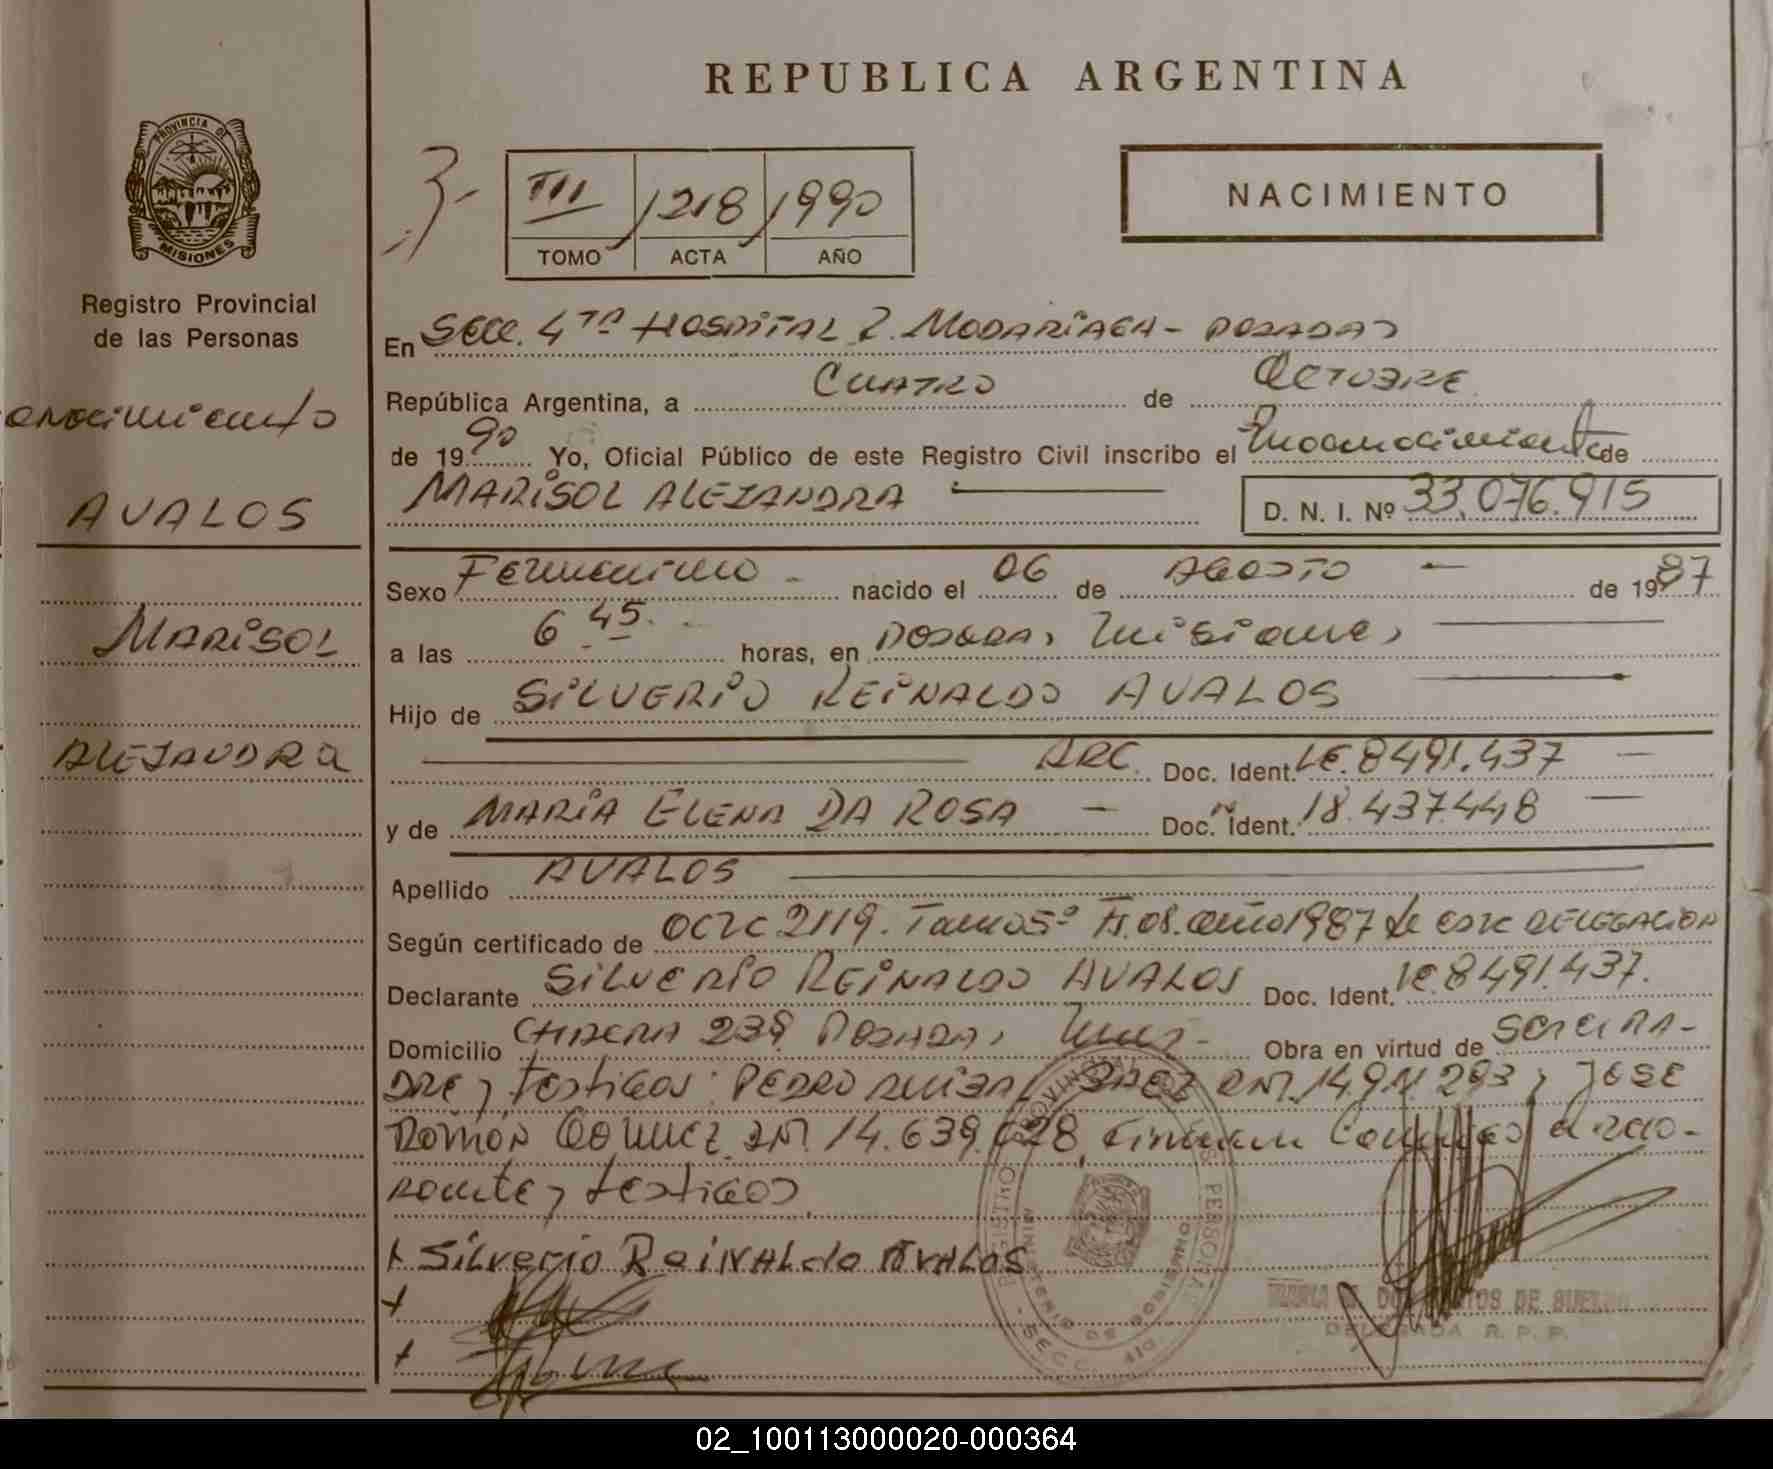 REPUBLICA ARGENTINA
PROVINCIA DE
MISIONES
Registro Provincial
de las Personas
III 1218 1990
TOMO ACTA AÑO
NACIMIENTO
En Secc. 4TA HOSPITAL R. MADARIAGA - POSADAS
República Argentina, a CUATRO de OCTUBRE
de 1990 Yo, Oficial Público de este Registro Civil inscribo el Reconocimiento de
MARISOL ALEJANDRA D. N. I. Nº 33.076.915
AVALOS
MARISOL
ALEJANDRA
Sexo Femenino - nacido el 06 de AGOSTO - de 1987
a las 6 45 horas, en POSADAS, Misiones
Hijo de SILVERIO REINALDO AVALOS
ARG. Doc. Ident. LE. 8491.437 -
y de MARIA ELENA DA ROSA - Doc. Ident. 18.437.448 -
Apellido AVALOS
Según certificado de ACTA 2119. Tomo 5º año 1987 de esta DELEGACION
Declarante SILVERIO REINALDO AVALOS Doc. Ident. LE. 8491.437.
Domicilio 239 POSADAS, Mnes - Obra en virtud de SER EL PA-
DRE y testigos: PEDRO BAEZ DNI. 14.911.293 y JOSE
RAMON GOMEZ DNI. 14.639.628, Firman Conmigo decla-
rante y testigos
+ Silverio Reinaldo AVALOS
+
+
REGISTRO PROVINCIAL DE LAS PERSONAS
MINISTERIO DE GOBIERNO
SECC.
DELEGADA R. P. P.
02_100113000020-000364